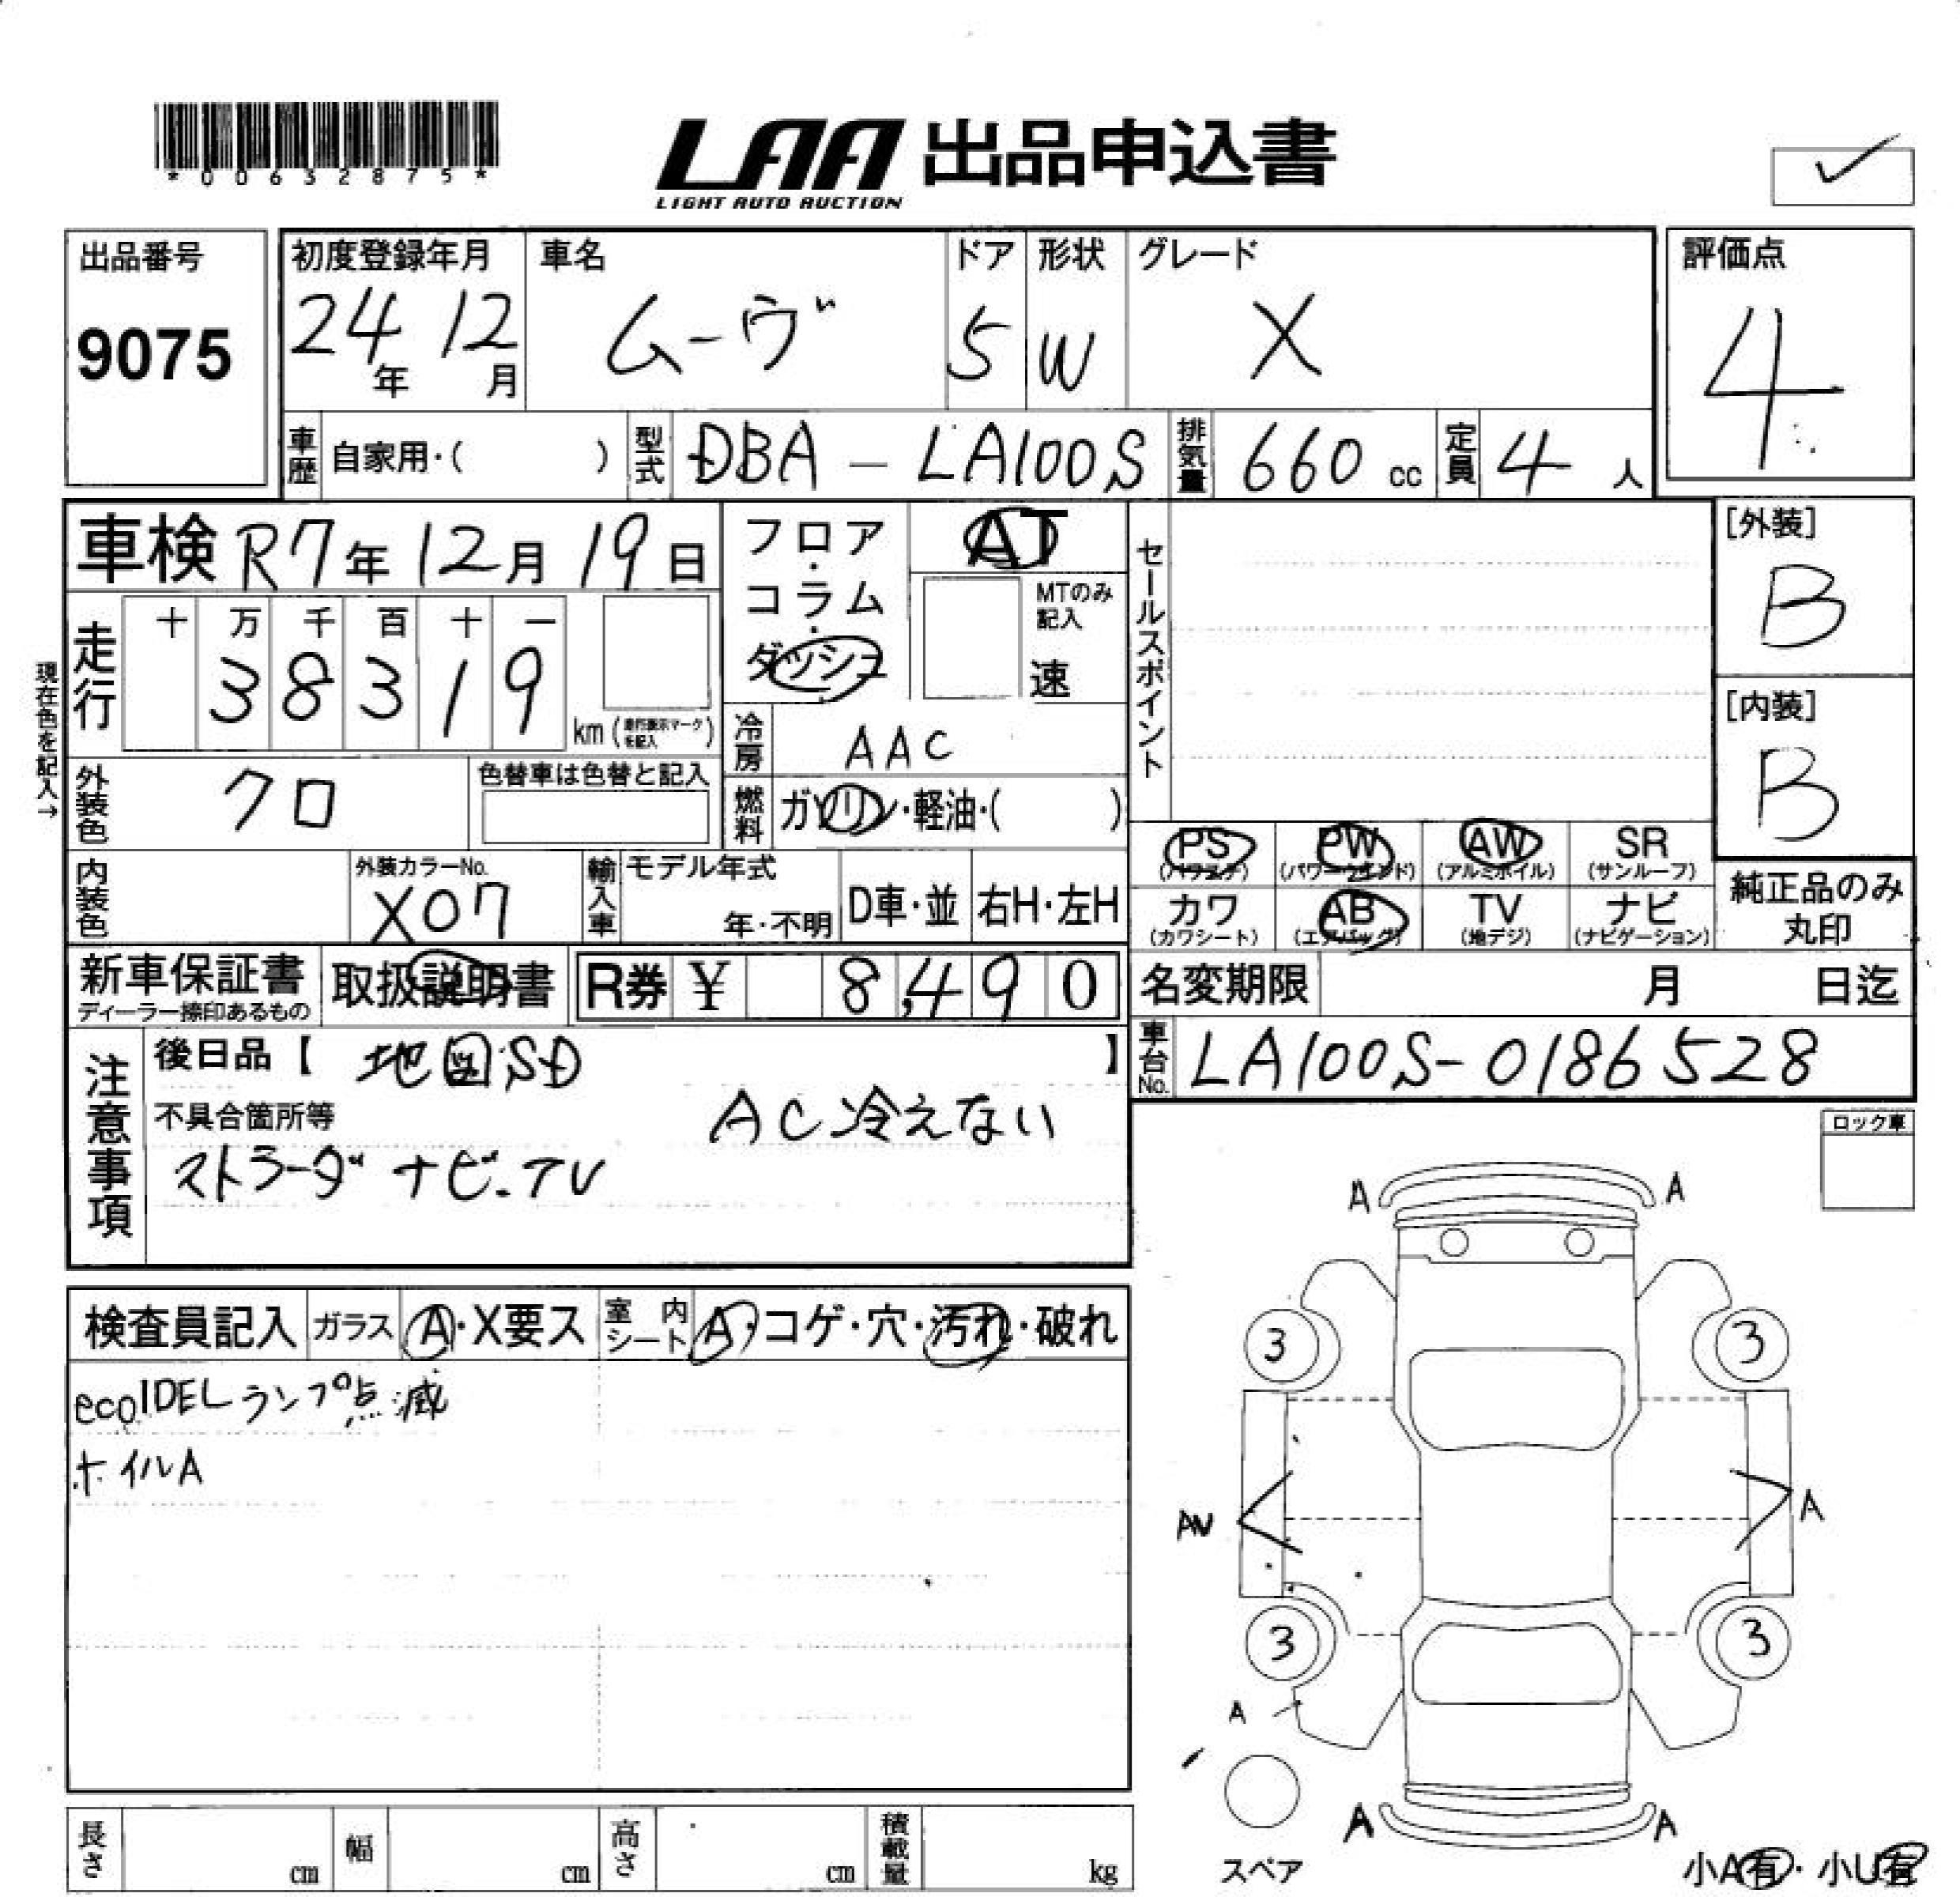 *00632875*
LAA 出品申込書
LIGHT AUTO AUCTION
出品番号
9075
初度登録年月
24年 12月
車名
ムーヴ
ドア
5
形状
W
グレード
X
評価点
4
車歴 自家用・( )
型式 DBA - LA100S
排気量 660 cc
定員 4 人
車検 R7年 12月 19日
フロア・コラム・ダッシュ
AT
MTのみ記入
速
セールスポイント
[外装]
B
[内装]
B
現在色を記入→
走行
十 万 千 百 十 一
3 8 3 1 9
km (走行表示マークを記入)
冷房 AAC
外装色 クロ
色替車は色替と記入
燃料 ガソリン・軽油・( )
PS
(パワステ)
PW
(パワーウインド)
AW
(アルミホイル)
SR
(サンルーフ)
内装色
外装カラーNo.
X07
輸入車
モデル年式
年・不明
D車・並
右H・左H
カワ
(カワシート)
AB
(エアバッグ)
TV
(地デジ)
ナビ
(ナビゲーション)
純正品のみ
丸印
新車保証書
ディーラー捺印あるもの
取扱説明書
R券 ¥ 8,490
名変期限 月 日迄
車台No. LA100S-0186528
注意事項
後日品【 地図SD 】
不具合箇所等
AC冷えない
ストラーダ ナビ.TV
ロック車
検査員記入
ガラス A・X要ス
室内シート A・コゲ・穴・汚れ・破れ
ecoIDELランプ点滅
ホイルA
A A
3 3
AU A
3 3
A
A A
スペア
小A有・小U有
長さ cm
幅 cm
高さ cm
積載量 kg